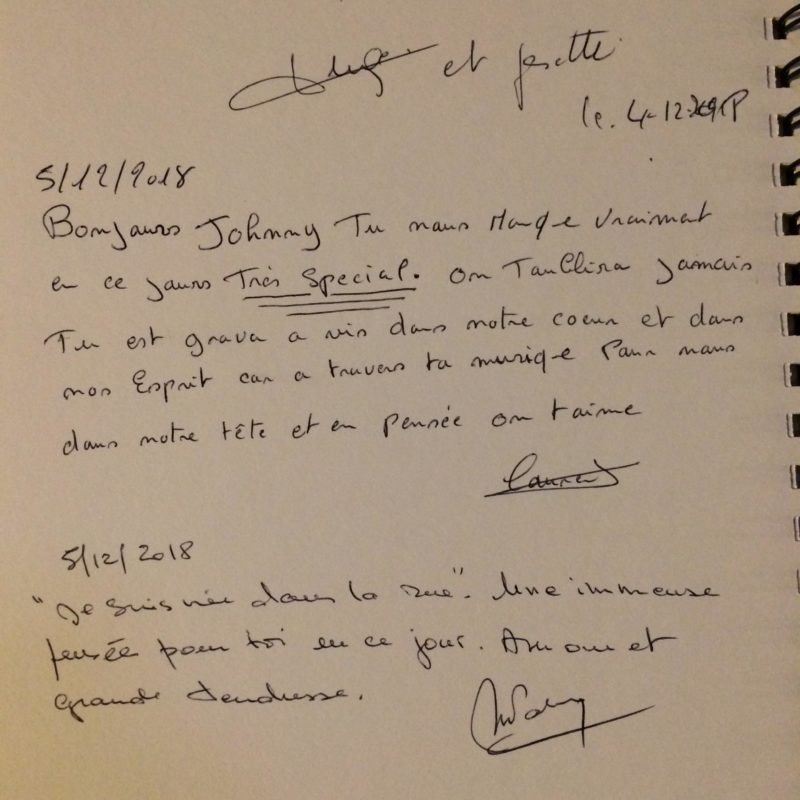 et Josette
le 4-12-
5/12/2018
Bonjours Johnny Tu nous Manqe vraimant
en ce jours Très Special. on Taublira jamais
Tu est grava a vis dans notre coeur et dans
nos Esprit car a travers ta musiqe Pour nous
dans notre tête et en pensée on t'aime
Laurent
5/12/2018
"Je suis née dans la rue". Une immense
pensée pour toi en ce jour. Amour et
grande tendresse.